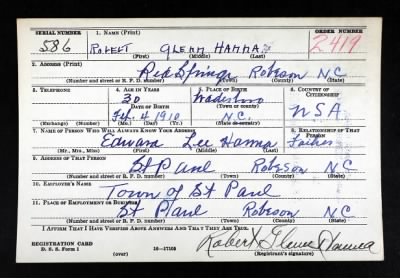 SERIAL NUMBER 1. NAME (Print) ORDER NUMBER
586 ROBERT GLENN HANNA 2419
(First) (Middle) (Last)
2. ADDRESS (Print)
Red Springs Robeson N.C.
(Number and street or R. F. D. number) (Town) (County) (State)
3. TELEPHONE 4. AGE IN YEARS 5. PLACE OF BIRTH 6. COUNTRY OF CITIZENSHIP
30 Wadesboro
DATE OF BIRTH (Town or county)
Feb. 4 1910 N.C. USA
(Exchange) (Number) (Mo.) (Day) (Yr.) (State or country)
7. NAME OF PERSON WHO WILL ALWAYS KNOW YOUR ADDRESS 8. RELATIONSHIP OF THAT PERSON
Edward Lee Hanna Father
(Mr., Mrs., Miss) (First) (Middle) (Last)
9. ADDRESS OF THAT PERSON
St Paul Robeson N C
(Number and street or R. F. D. number) (Town) (County) (State)
10. EMPLOYER'S NAME
Town of St Paul
11. PLACE OF EMPLOYMENT OR BUSINESS
St Paul Robeson N C
(Number and street or R. F. D. number) (Town) (County) (State)
I AFFIRM THAT I HAVE VERIFIED ABOVE ANSWERS AND THAT THEY ARE TRUE.
Robert Glenn Hanna
REGISTRATION CARD
D. S. S. Form 1 16—17105 (over) (Registrant's signature)